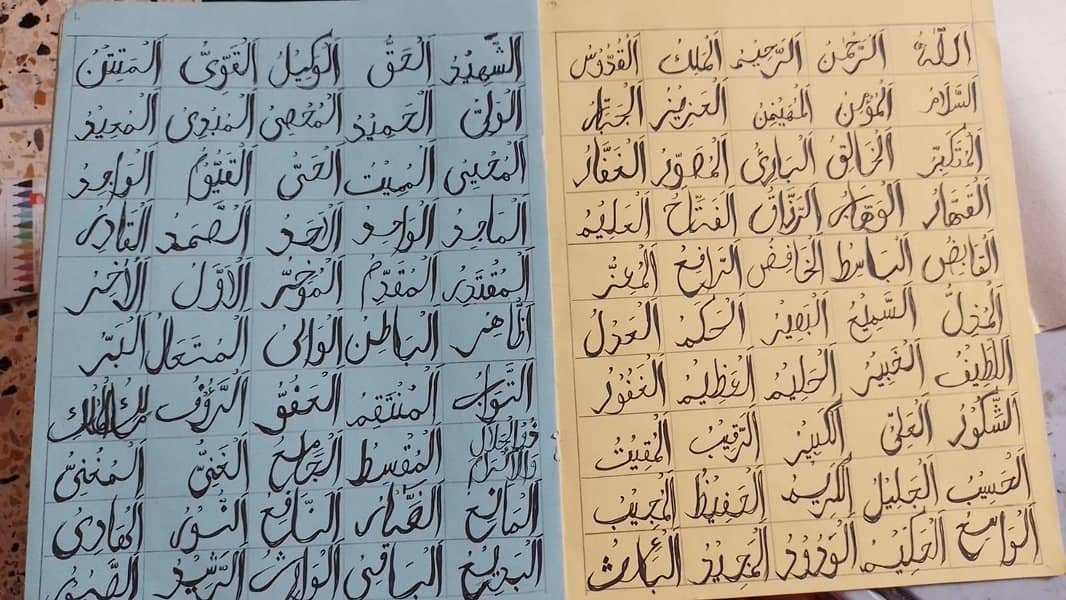 اللّٰهُ الرَّحْمٰنُ الرَّحِيْمُ الْمَلِكُ الْقُدُّوْسُ
السَّلَامُ الْمُؤْمِنُ الْمُهَيْمِنُ الْعَزِيْزُ الْجَبَّارُ
الْمُتَكَبِّرُ الْخَالِقُ الْبَارِئُ الْمُصَوِّرُ الْغَفَّارُ
الْقَهَّارُ الْوَهَّابُ الرَّزَّاقُ الْفَتَّاحُ الْعَلِيْمُ
الْقَابِضُ الْبَاسِطُ الْخَافِضُ الرَّافِعُ الْمُعِزُّ
الْمُذِلُّ السَّمِيْعُ الْبَصِيْرُ الْحَكَمُ الْعَدْلُ
اللَّطِيْفُ الْخَبِيْرُ الْحَلِيْمُ الْعَظِيْمُ الْغَفُوْرُ
الشَّكُوْرُ الْعَلِىُّ الْكَبِيْرُ الرَّقِيْبُ الْمُقِيْتُ
الْحَسِيْبُ الْجَلِيْلُ الْكَرِيْمُ الْحَفِيْظُ الْمُجِيْبُ
الْوَاسِعُ الْحَكِيْمُ الْوَدُوْدُ الْمَجِيْدُ الْبَاعِثُ
الشَّهِيْدُ الْحَقُّ الْوَكِيْلُ الْقَوِىُّ الْمَتِيْنُ
الْوَلِىُّ الْحَمِيْدُ الْمُحْصِى الْمُبْدِئُ الْمُعِيْدُ
الْمُحْيِى الْمُمِيْتُ الْحَىُّ الْقَيُّوْمُ الْوَاجِدُ
الْمَاجِدُ الْوَاحِدُ الْاَحَدُ الصَّمَدُ الْقَادِرُ
الْمُقْتَدِرُ الْمُقَدِّمُ الْمُؤَخِّرُ الْاَوَّلُ الْاٰخِرُ
الظَّاهِرُ الْبَاطِنُ الْوَالِى الْمُتَعَالُ الْبَرُّ
التَّوَّابُ الْمُنْتَقِمُ الْعَفُوُّ الرَّءُوْفُ مَالِكُ الْمُلْكِ
ذُو الْجَلَالِ وَالْاِكْرَامِ الْمُقْسِطُ الْجَامِعُ الْغَنِىُّ الْمُغْنِىُّ
الْمَانِعُ الضَّارُّ النَّافِعُ النُّوْرُ الْهَادِىُ
الْبَدِيْعُ الْبَاقِىُ الْوَارِثُ الرَّشِيْدُ الصَّبُوْرُ